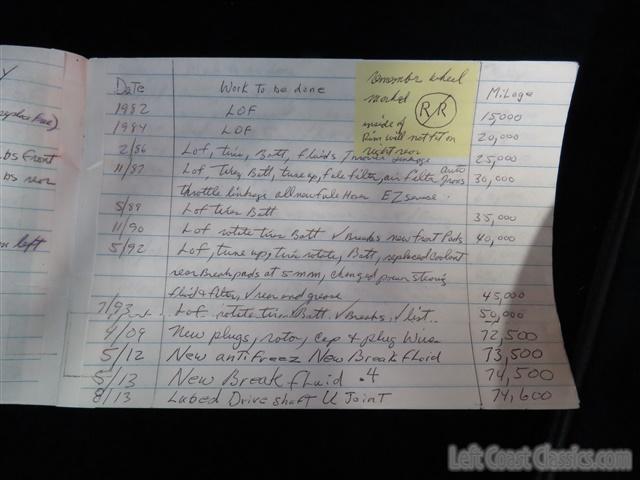 Date Work to be done MiLage
1982 LOF 15000
1984 LOF 20,000
2/86 Lof, tires, Batt, fluids linkage 25,000
11/87 Lof, Batt, tune up, fule filter, air filter auto 30,000
throttle linkage all new fule Hoses EZ
5/89 Lof tires Batt 35,000
11/90 Lof rotate tires Batt ✓ Breaks new front Pads 40,000
5/92 Lof, tune up, tire rotate, Batt, replaced Coolant
rear Break pads at 5mm, changed power
fluid & filter, ✓ rear end grease 45,000
7/93 Lof rotate tires Batt ✓ Breaks, ✓ list.. 50,000
4/09 New plugs, rotor, cap & plug Wires 72,500
5/12 New antiFreez New Break Fluid 73,500
5/13 New Break fluid .4 74,500
8/13 Lubed Drive shaft U Joint 74,600
remember wheel
marked R/R
inside of
Rim will not fit on
right rear
bs front
bs rear
left
Left Coast Classics.com